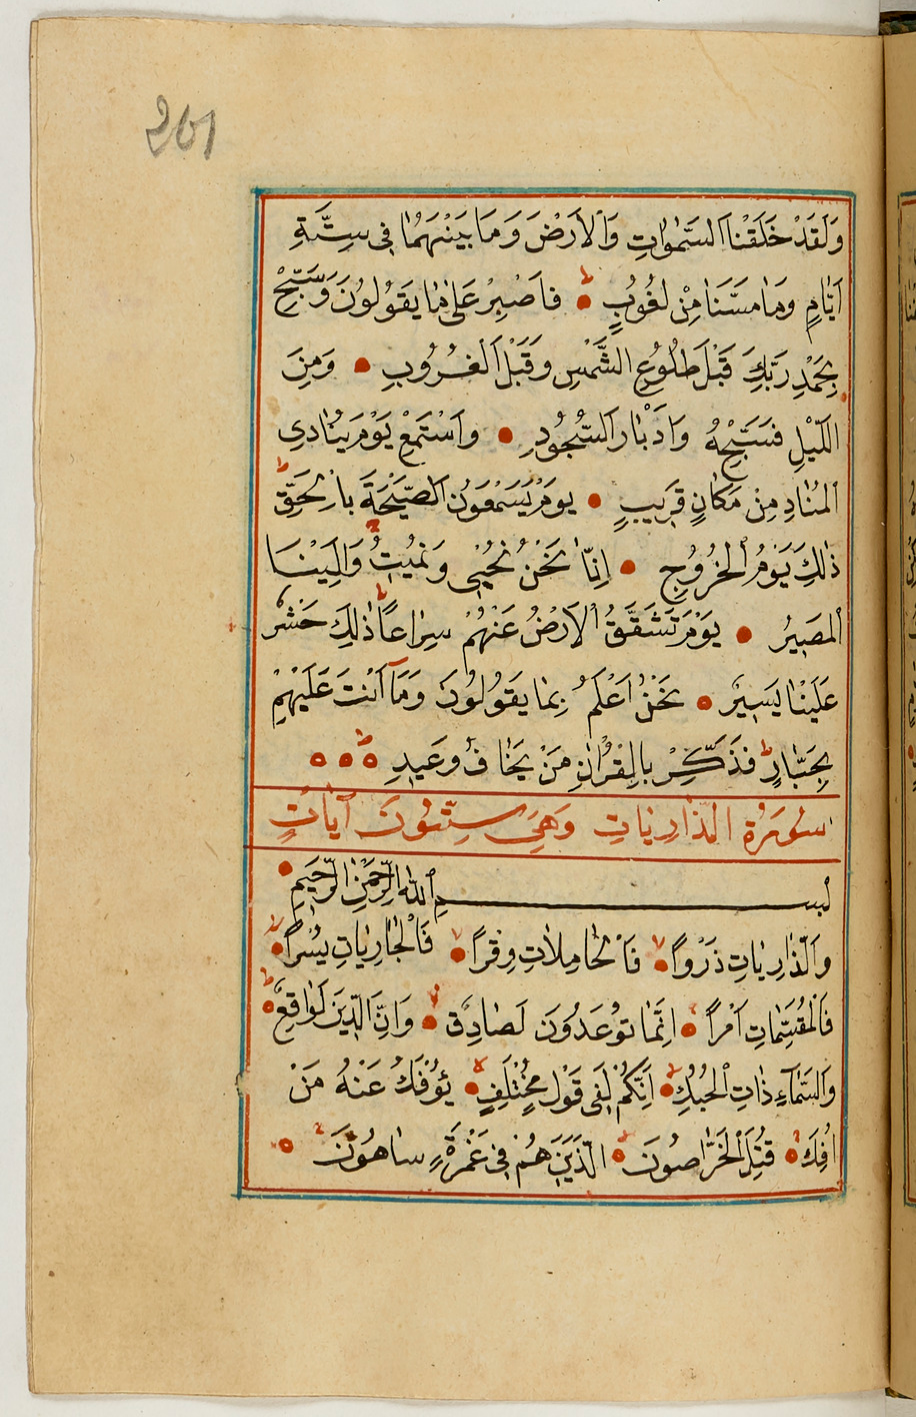 261
وَلَقَدْ خَلَقْنَا السَّمٰوَاتِ وَالْاَرْضَ وَمَا بَيْنَهُمَا فِى سِتَّةِ
اَيَّامٍ وَمَا مَسَّنَا مِنْ لُغُوبٍ فَاصْبِرْ عَلٰى مَا يَقُولُونَ وَسَبِّحْ
بِحَمْدِ رَبِّكَ قَبْلَ طُلُوعِ الشَّمْسِ وَقَبْلَ الْغُرُوبِ وَمِنَ
الَّيْلِ فَسَبِّحْهُ وَاَدْبَارَ السُّجُودِ وَاسْتَمِعْ يَوْمَ يُنَادِى
الْمُنَادِ مِنْ مَكَانٍ قَرِيبٍ يَوْمَ يَسْمَعُونَ الصَّيْحَةَ بِالْحَقِّ
ذٰلِكَ يَوْمُ الْخُرُوجِ اِنَّا نَحْنُ نُحْيِى وَنُمِيتُ وَاِلَيْنَا
الْمَصِيرُ يَوْمَ تَشَقَّقُ الْاَرْضُ عَنْهُمْ سِرَاعًا ذٰلِكَ حَشْرٌ
عَلَيْنَا يَسِيرٌ نَحْنُ اَعْلَمُ بِمَا يَقُولُونَ وَمَا اَنْتَ عَلَيْهِمْ
بِجَبَّارٍ فَذَكِّرْ بِالْقُرْاٰنِ مَنْ يَخَافُ وَعِيدِ
سُورَةُ الذَّارِيَاتِ وَهِىَ سِتُّونَ آيَاتٍ
بِسْمِ اللّٰهِ الرَّحْمٰنِ الرَّحِيمِ
وَالذَّارِيَاتِ ذَرْوًا فَالْحَامِلَاتِ وِقْرًا فَالْجَارِيَاتِ يُسْرًا
فَالْمُقَسِّمَاتِ اَمْرًا اِنَّمَا تُوعَدُونَ لَصَادِقٌ وَاِنَّ الدِّينَ لَوَاقِعٌ
وَالسَّمَآءِ ذَاتِ الْحُبُكِ اِنَّكُمْ لَفِى قَوْلٍ مُخْتَلِفٍ يُؤْفَكُ عَنْهُ مَنْ
اُفِكَ قُتِلَ الْخَرَّاصُونَ الَّذِينَ هُمْ فِى غَمْرَةٍ سَاهُونَ